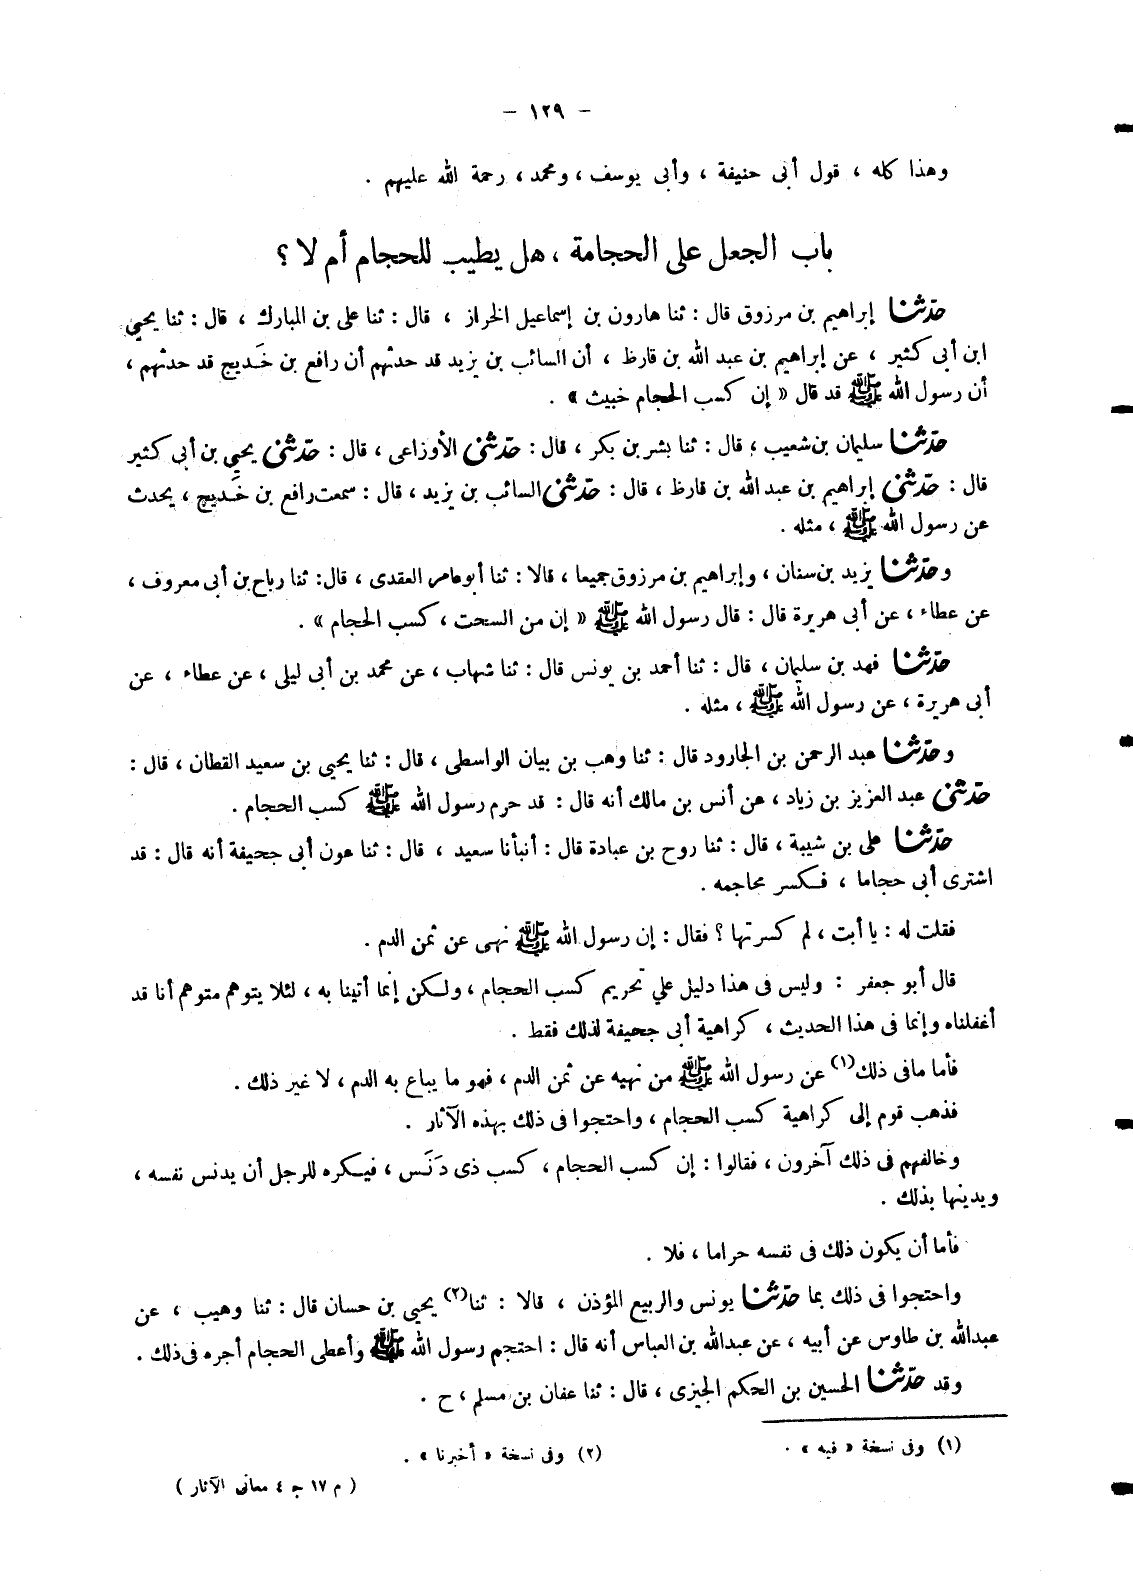 – ١٢٩ –
وهذا كله ، قول أبى حنيفة ، وأبى يوسف ، ومحمد ، رحمة الله عليهم .
باب الجعل على الحجامة ، هل يطيب للحجام أم لا ؟
حدّثنا إبراهيم بن مرزوق قال : ثنا هارون بن إسماعيل الخراز ، قال : ثنا على بن المبارك ، قال : ثنا يحيى
ابن أبى كثير ، عن إبراهيم بن عبد الله بن قارظ ، أن السائب بن يزيد قد حدثهم أن رافع بن خَديج قد حدثهم ،
أن رسول الله ﷺ قد قال « إن كسب الحجام خبيث » .
حدّثنا سليمان بن شعيب ؛ قال : ثنا بشر بن بكر ، قال : حدّثنى الأوزاعى ، قال : حدّثنى يحيى بن أبى كثير
قال : حدّثنى إبراهيم بن عبد الله بن قارظ ، قال : حدّثنى السائب بن يزيد ، قال : سمعت رافع بن خَديج ، يحدث
عن رسول الله ﷺ ، مثله .
وحدّثنا يزيد بن سنان ، وإبراهيم بن مرزوق جميعا ، قالا : ثنا أبو عامر العقدى ، قال: ثنا رباح بن أبى معروف ،
عن عطاء ، عن أبى هريرة قال : قال رسول الله ﷺ « إن من السحت ، كسب الحجام » .
حدّثنا فهد بن سليمان ، قال : ثنا أحمد بن يونس قال : ثنا شهاب ، عن محمد بن أبى ليلى ، عن عطاء ، عن
أبى هريرة ، عن رسول الله ﷺ ، مثله .
وحدّثنا عبد الرحمن بن الجارود قال : ثنا وهب بن بيان الواسطى ، قال : ثنا يحيى بن سعيد القطان ، قال :
حدّثنى عبد العزيز بن زياد ، عن أنس بن مالك أنه قال : قد حرم رسول الله ﷺ كسب الحجام .
حدّثنا على بن شيبة ، قال : ثنا روح بن عبادة قال : أنبأنا سعيد ، قال : ثنا عون أبى جحيفة أنه قال : قد
اشترى أبى حجاما ، فكسر محاجمه .
فقلت له : يا أبت ، لم كسرتها ؟ فقال : إن رسول الله ﷺ نهى عن ثمن الدم .
قال أبو جعفر : وليس فى هذا دليل على تحريم كسب الحجام ، ولكن إنما أتينا به ، لئلا يتوهم متوهم أنا قد
أغفلناه وإنما فى هذا الحديث ، كراهية أبى جحيفة لذلك فقط .
فأما ما فى ذلك(١) عن رسول الله ﷺ من نهيه عن ثمن الدم ، فهو ما يباع به الدم ، لا غير ذلك .
فذهب قوم إلى كراهية كسب الحجام ، واحتجوا فى ذلك بهذه الآثار .
وخالفهم فى ذلك آخرون ، فقالوا : إن كسب الحجام ، كسب ذى دَنَس ، فيكره للرجل أن يدنس نفسه ،
ويدينها بذلك .
فأما أن يكون ذلك فى نفسه حراما ، فلا .
واحتجوا فى ذلك بما حدّثنا يونس والربيع المؤذن ، قالا : ثنا(٢) يحيى بن حسان قال : ثنا وهيب ، عن
عبدالله بن طاوس عن أبيه ، عن عبدالله بن العباس أنه قال : احتجم رسول الله ﷺ وأعطى الحجام أجره فى ذلك .
وقد حدّثنا الحسين بن الحكم الجيزى ، قال : ثنا عفان بن مسلم ، ح .
(١) وفى نسخة « فيه » . (٢) وفى نسخة « أخبرنا » .
( م ١٧ ج ٤ معانى الآثار )